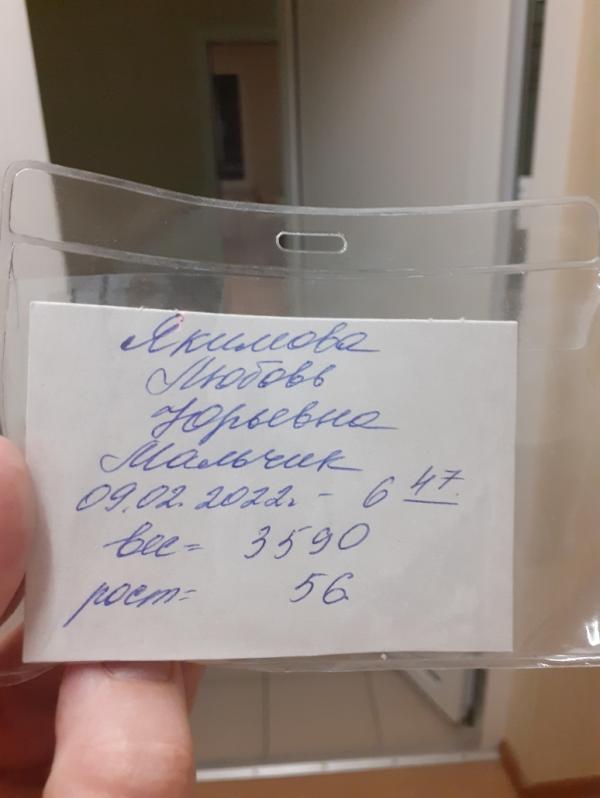 Якимова
Любовь
Юрьевна
Мальчик
09.02.2022г - 6 47.
вес= 3590
рост= 56